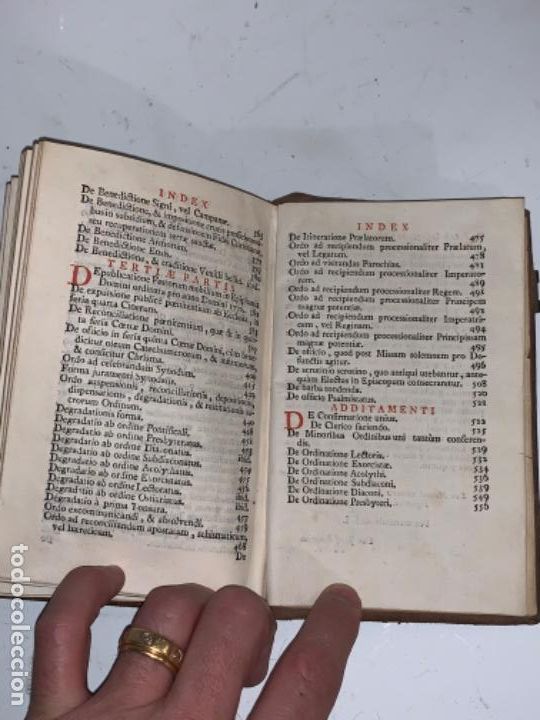 INDEX
De Benedictione Signi, vel Campanæ.
De Benedictione, & impositione crucis proficiscentibus in subsidium, & defensionem Fidei Christianæ,
seu recuperationem terræ sanctæ.
De Benedictione Armorum.
De Benedictione Ensis.
De Benedictione, & traditione Vexilli bellici. ibid.
TERTIÆ PARTIS
DE publicatione Festorum mobilium in Epiphania
Domini
De expulsione publicè pœnitentium ab Ecclesia, in
feria quarta Cinerum.
De Reconciliatione pœnitentium, quæ fit in quinta
feria Cœnæ Domini.
De officio in feria quinta Cœnæ Domini, cum benedicitur
oleum Catechumenorum, & infirmorum,
& conficitur Chrisma.
Ordo ad celebrandam Synodum.
Forma juramenti Synodalis.
Ordo suspensionis, reconciliationis, depositionis,
dispensationis, degradationis, & restitutionis
sacrorum Ordinum.
Degradationis forma.
Degradatio ab ordine Pontificali. 460
Degradatio ab ordine Presbyteratus.
Degradatio ab ordine Diaconatus.
Degradatio ab ordine Subdiaconatus. ibid.
Degradatio ab ordine Acolythatus.
Degradatio ab ordine Exorcistatus. ibid.
Degradatio ab ordine Lectoratus.
Degradatio ab ordine Ostiariatus. ibid.
Degradatio à prima Tonsura. ibid.
Ordo excommunicandi, & absolvendi.
Ordo ad reconciliandum apostatam, schismaticum,
vel hæreticum. 468
De
INDEX
De Itineratione Prælatorum. 475
Ordo ad recipiendum processionaliter Prælatum,
vel Legatum. 478
Ordo ad visitandas Parochias. 481
Ordo ad recipiendum processionaliter Imperatorem.
Ordo ad recipiendum processionaliter Regem. 492
Ordo ad recipiendum processionaliter Principem
magnæ potentiæ. 493
Ordo ad recipiendum processionaliter Imperatricem,
vel Reginam. 494
Ordo ad recipiendum processionaliter Principissam
magnæ potentiæ. 495
De officio, quod post Missam solemnem pro Defunctis
agitur. 496
De scrutinio serotino, quo antiqui utebantur, antequam
Electus in Episcopum consecraretur. 508
De barba tondenda. 520
De officio Psalmistatus. 521
ADDITAMENTI
DE Confirmatione unius. 522
De Clerico faciendo. 525
De Minoribus Ordinibus uni tantùm conferendis.
De Ordinatione Lectoris. 529
De Ordinatione Exorcistæ. 532
De Ordinatione Acolythi. 534
De Ordinatione Subdiaconi. 536
De Ordinatione Diaconi. 549
De Ordinatione Presbyteri. 556
todocoleccion.net